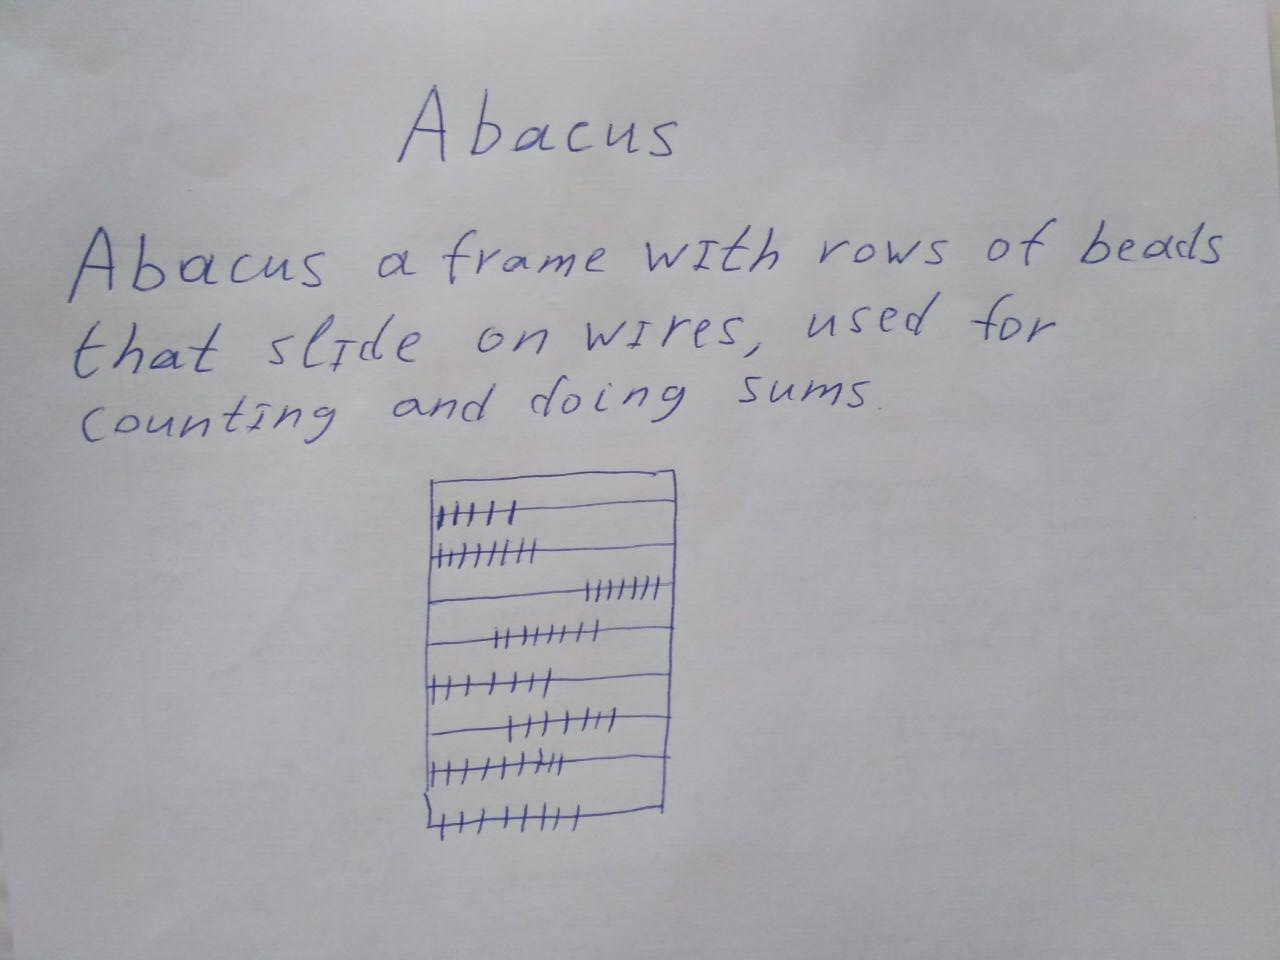 Abacus
Abacus a frame with rows of beads
that slide on wires, used for
counting and doing sums.